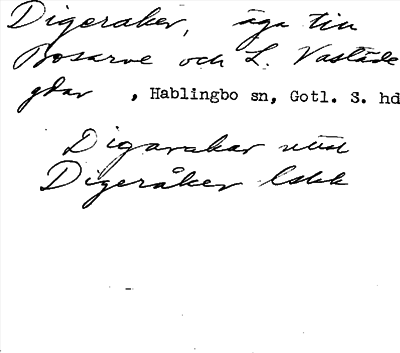 Digeraker, äga till
Bosarve och L. Vastäde
gdar , Hablingbo sn, Gotl. S. hd
Digarakar
Digeråker